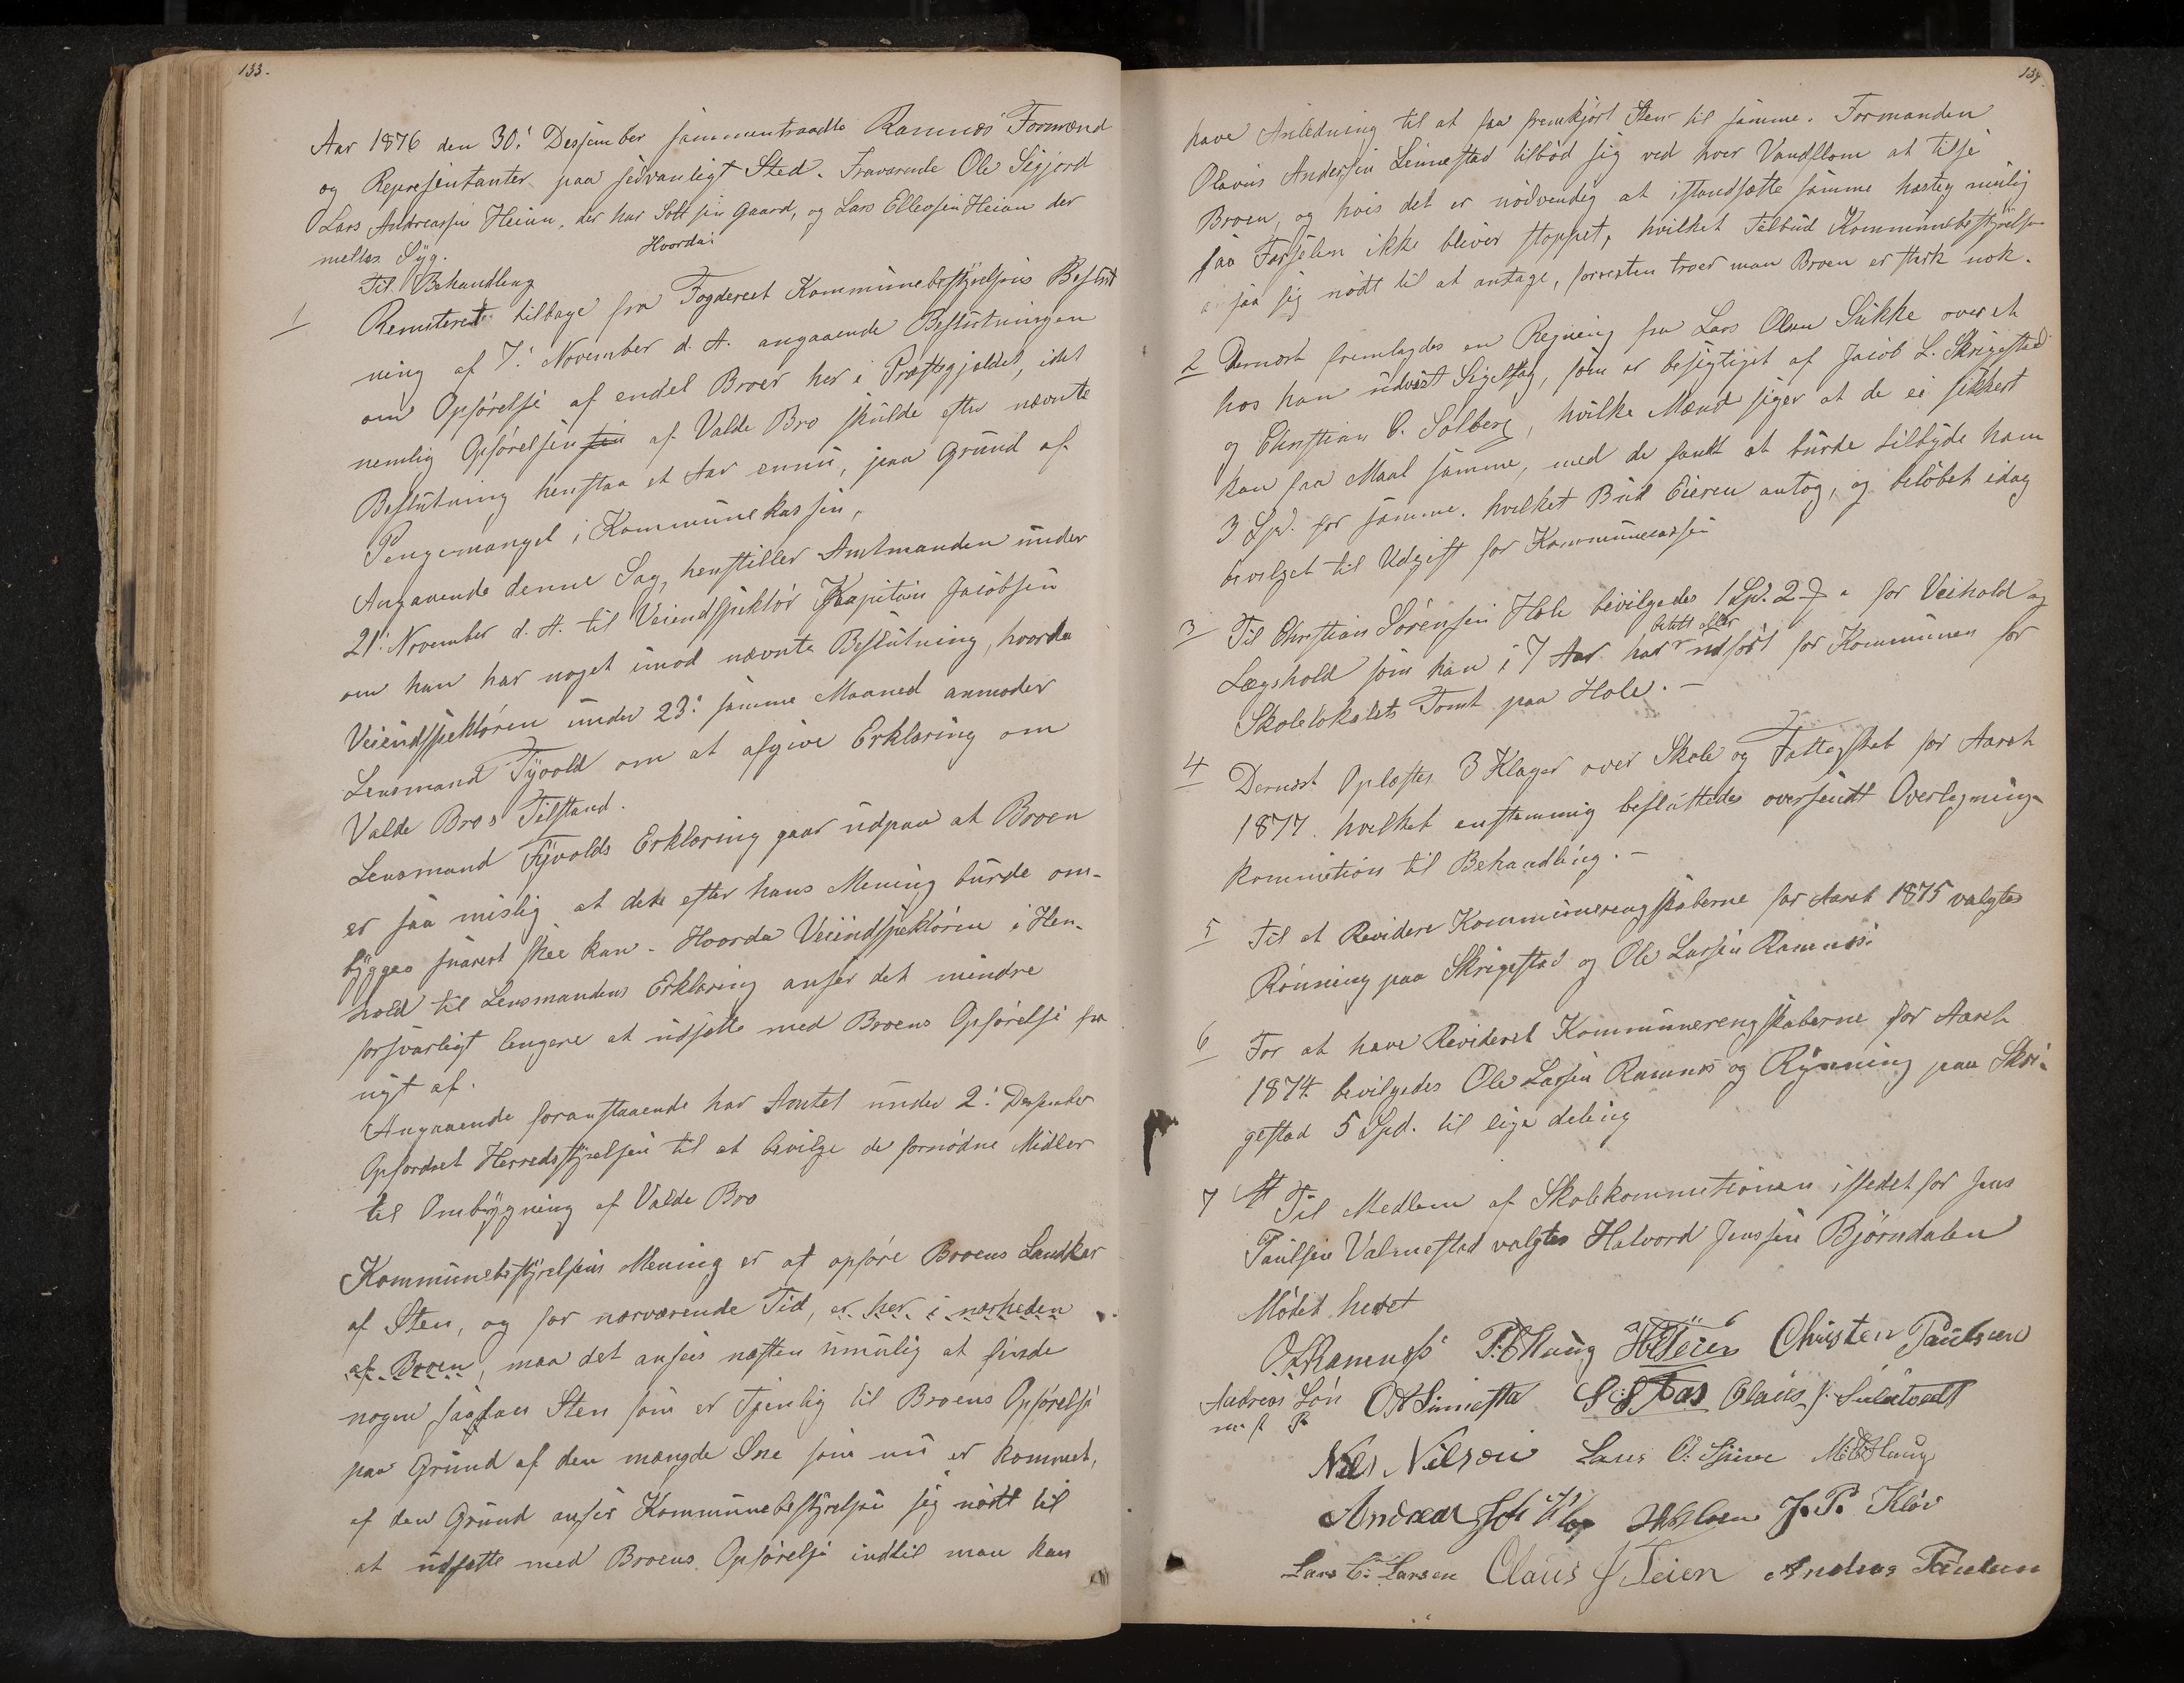 133.
Aar 1876 den 30: Desember sammentraadte Ramnæs Formænd
og Representanter paa sedvanligt Sted. Fraværende Ole Sigjord
Lars Andreassen Heian, der har Solt sin Gaard, og Lars Ellevsen Heian der
meltes Syg. Hvorda:
til Behandling
1 Remiteret tilbage fra Fogderiet Kommunebestyrelsens Beslut
ning af 7: November d. A. angaaende Beslutningen
om Opførelse af endel Broer her i Præstegjeldet, idet
nemlig Opførelsen af Valde Bro skulde efter nævnte
Beslutning henstaa et Aar ennu, paa Grund af
Pengemangel i Kommunekassen,
Angaaende denne Sag, henstiller Amtmanden under
21: November d. A. til Veiendspektør Kapitain Jacobsen
om han har noget imod nævnte Beslutning, hvorda
Veiendspektøren under 23: samme Maaned anmoder
Lensmand Tyvold om at afgive Erklæring om
Valde Bros Tilstand.
Lensmand Tyvolds Erklæring gaar udpaa at Broen
er saa mislig at dete efter hans Mening burde om-
bygges snarest skee kan. Hvorda Veiendspektøren i Hen-
hold til Lensmandens Erklæring anser det mindre
forsvarligt lengere at udsætte med Broens Opførelse fra
nyt af.
Angaaende foranstaaende har Amtet under 2: Desember
Opfordret Herredsstyrelsen til at bevilge de fornødne Midler
til Ombygning af Valde Bro
Kommunebestyrelsens Mening er at opføre Broens Landkar
af Sten, og for nærværende Tid, er her i nærheden
af Broen, maa det ansees næsten umulig at finde
nogen saadan Sten som er tjenlig til Broens Opførelse
paa Grund af den mængde Sne som nu er kommet,
af den Grund anser Kommunebestyrelsen sig nødt til
at udsætte med Broens Opførelse indtil man kan
134.
have Anledning til at faa fremkjørt Sten til samme. Formanden
Olavus Andersen Linnestad tilbød sig ved hver Vandflom at tilse
Broen, og hvis det er nødvendig at istandsætte samme hastig mulig
saa Færselen ikke bliver stoppet, hvilket Tilbud Kommunebestyrelsen
ansaa sig nødt til at antage, forresten troer man Broen er sterk nok.
2 Dernæst fremlagdes en Regning fra Lars Olsen Sukke over et
hos han udvist Sigeltag, som er besigtiget af Jacob L. Skrigestad
og Christian C. Solberg, hvilke Mænd siger at de ei sikkert
kan faa Maal samme, med de fandt at burde tilbyde ham
3 Spd. for samme. hvilket Bud Eieren antog, og beløbet idag
bevilget til Udgift for Kommunecassen
3 Til Christian Sørensen Hole bevilgedes 1 Spd. 2 for Veihold og
Lægshold som han i 7 Aar har betalt eller udført for Kommunen for
Skolelokalets Tomt paa Hole. –
4 Dernæst Oplæstes 3 Klager over Skole og Fattigskat for Aaret
1877. hvilket enstemmig besluttedes oversendt Overlignings
kommition til Behandling. –
5 Til at Revidere Kommunerengskaberne for Aaret 1875 valgtes
Rønning paa Skrigestad og Ole Larsen Ramnæs.
6 For at have Revideret Kommunerengskaberne for Aaret
1874 bevilgedes Ole Larsen Ramnes og Rynning paa Skri-
gestad 5 Spd. til lige deling
7 Til Medlem af Skolekommitionen istedet for Jens
Paulsen Valmestad valgtes Halvord Jenssen Bjørndalen
Mødet hevet
O L Ramnes P. E. Haug Christen Paulsen
Andreas Søn O A Linnesta Olaus J. Sulutvedt
m. f. P.
Nils Nilsen Lars M. E. Haug
Andreas J. P. Kløv
Lars C. Larsen Olaus J Teien Andreas Paulsen